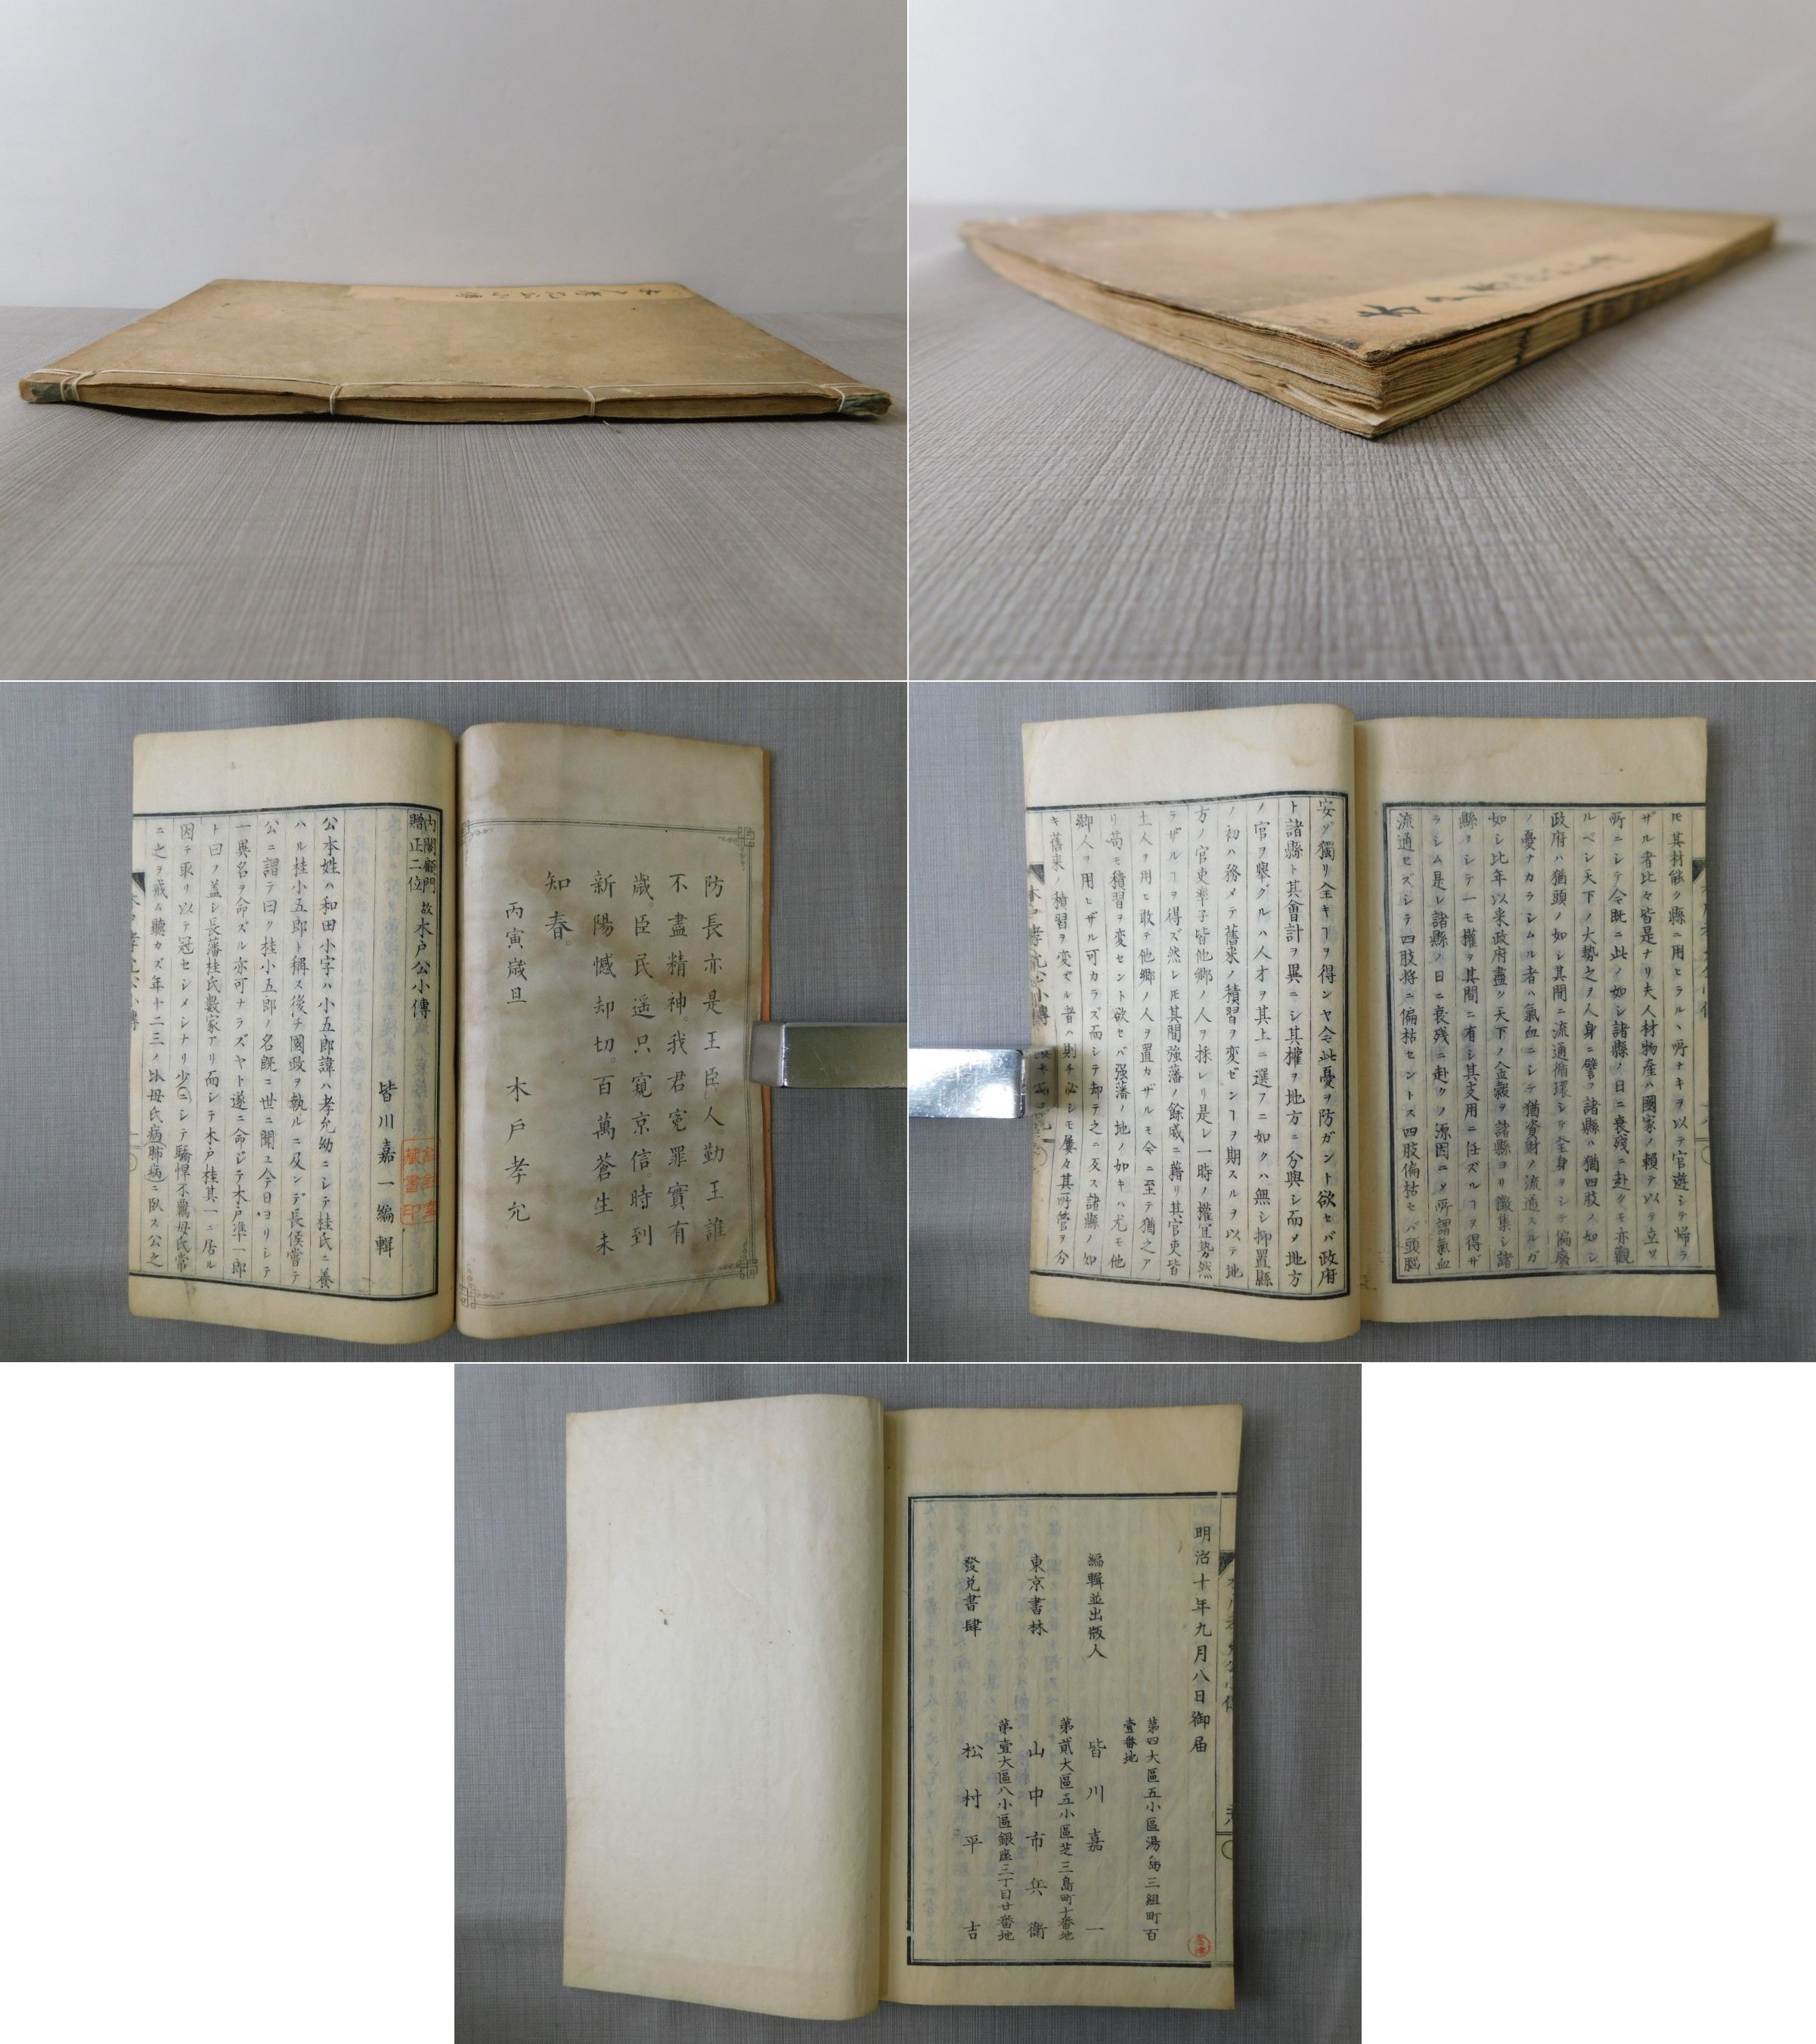 木戸孝允公小傳
防長亦是王臣人勤王誰
不盡精神。我君寃罪實有
歳。臣民遥只寛京信。時到
新陽憾却切。百萬蒼生未
知春。
丙寅歳旦　木戸孝允
内閣顧問
贈正二位
故木戸公小傳
皆川嘉一編輯
公本姓ハ和田小字ハ小五郎諱ハ孝允幼ニシテ桂氏ニ養
ハル桂小五郎ト稱ス後チ國政ヲ執ルニ及ンデ長侯嘗テ
公ニ謂テ曰ク桂小五郎ノ名既ニ世ニ聞ユ今日ヨリシテ
一異名ヲ命ズル亦可ナラズヤト遂ニ命ジテ木戸準一郎
ト曰フ蓋シ長藩桂氏數家アリ而シテ木戸桂其一ニ居ル
因テ取リ以テ冠セシメシナリ少ニシテ驕悍不羈母氏常
ニ之ヲ戒ム聽カズ年十二三ノ比母氏病肺病ニ臥ス公之
藏書印
其材能ク縣ニ用ヒラルヽ所ナキヲ以テ官遊シテ歸ラ
ザル者比々皆是ナリ夫人材物産ハ國家ノ頼テ以テ立ツ
所ニシテ今既ニ此ノ如シ諸縣ノ日ニ衰残ニ赴クモ亦觀
ルベシ天下ノ大勢之ヲ人身ニ譬フ諸縣ハ猶四肢ノ如シ
政府ハ猶頭ノ如シ其間ニ流通循環シテ全身ヲシテ偏廢
ノ憂ナカラシムル者ハ氣血ニシテ猶資財ノ流通スルガ
如シ比年以来政府盡ク天下ノ金穀ヲ諸縣ヨリ徴集シ諸
縣ヲシテ一モ權ヲ其間ニ有シ其支用ニ任ズルヿヲ得ザ
ラシム是レ諸縣ノ日ニ衰残ニ赴クノ源因ニメ所謂氣血
流通セズシテ四肢将ニ偏枯セントス四肢偏枯セバ頭脳
安ゾ獨リ全キヿヲ得ンヤ今此憂ヲ防ガント欲セバ政府
ト諸縣ト其會計ヲ異ニシ其權ヲ地方ニ分與シ而メ地方
ノ官ヲ擧グルハ人才ヲ其土ニ選フニ如クハ無シ抑置縣
ノ初ハ務メテ舊来ノ積習ヲ変ゼンヿヲ期スルヲ以テ地
方ノ官吏率子皆他郷ノ人ヲ採レリ是レ一時ノ權宜勢然
ラザルヿヲ得ズ然レ𪜈其間強藩ノ餘威ニ藉リ其官吏皆
土人ヲ用ヒ敢テ他郷ノ人ヲ置カザルモ今ニ至テ猶之ア
リ苟モ積習ヲ変セント欲セバ强藩ノ地ノ如キハ尤モ他
郷人ヲ用ヒザル可カラズ而シテ却テ之ニ反ス諸縣ノ如
キ舊来ノ積習ヲ変ゼル者ハ則チ必シモ屢々其所管ヲ分
明治十年九月八日御届
第四大區五小區湯島三組町百
壹番地
編輯並出版人　皆川嘉一
第貳大區五小區芝三島町十番地
東京書林　山中市兵衛
第壹大區八小區銀座三丁目廿番地
發兌書肆　松村平吉